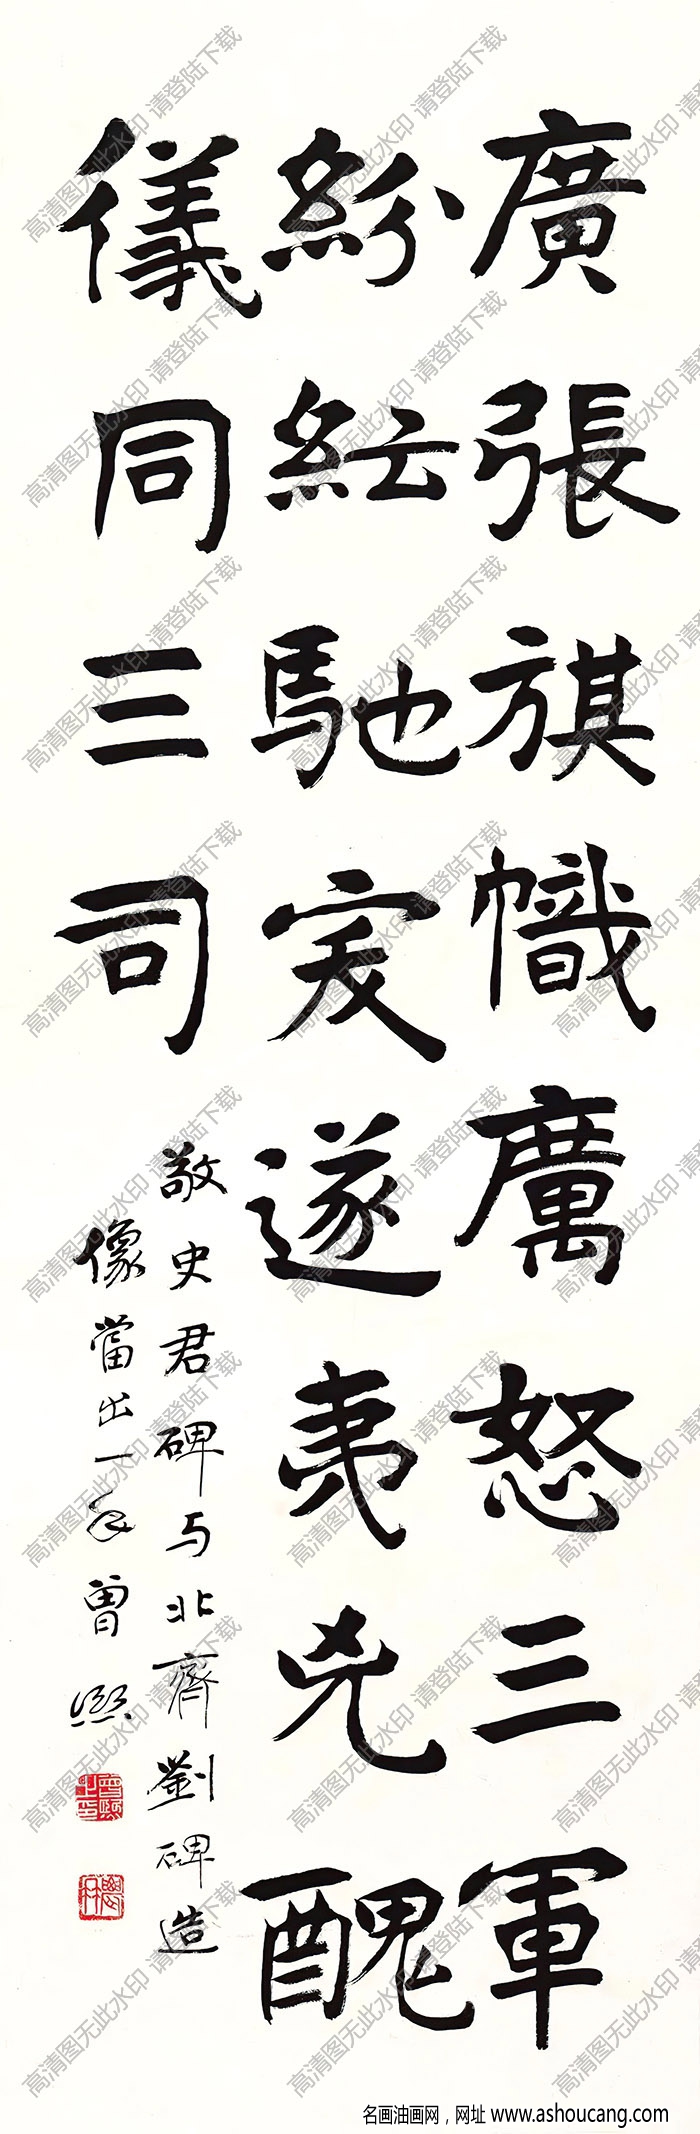 廣張旗幟厲怒三軍
紛紜馳突遂夷兇醜
儀同三司
敬史君碑与北齊劉碑造
像當出一手曾熙
高清图无此水印 请登陆下载
名画油画网，网址 www.ashoucang.com